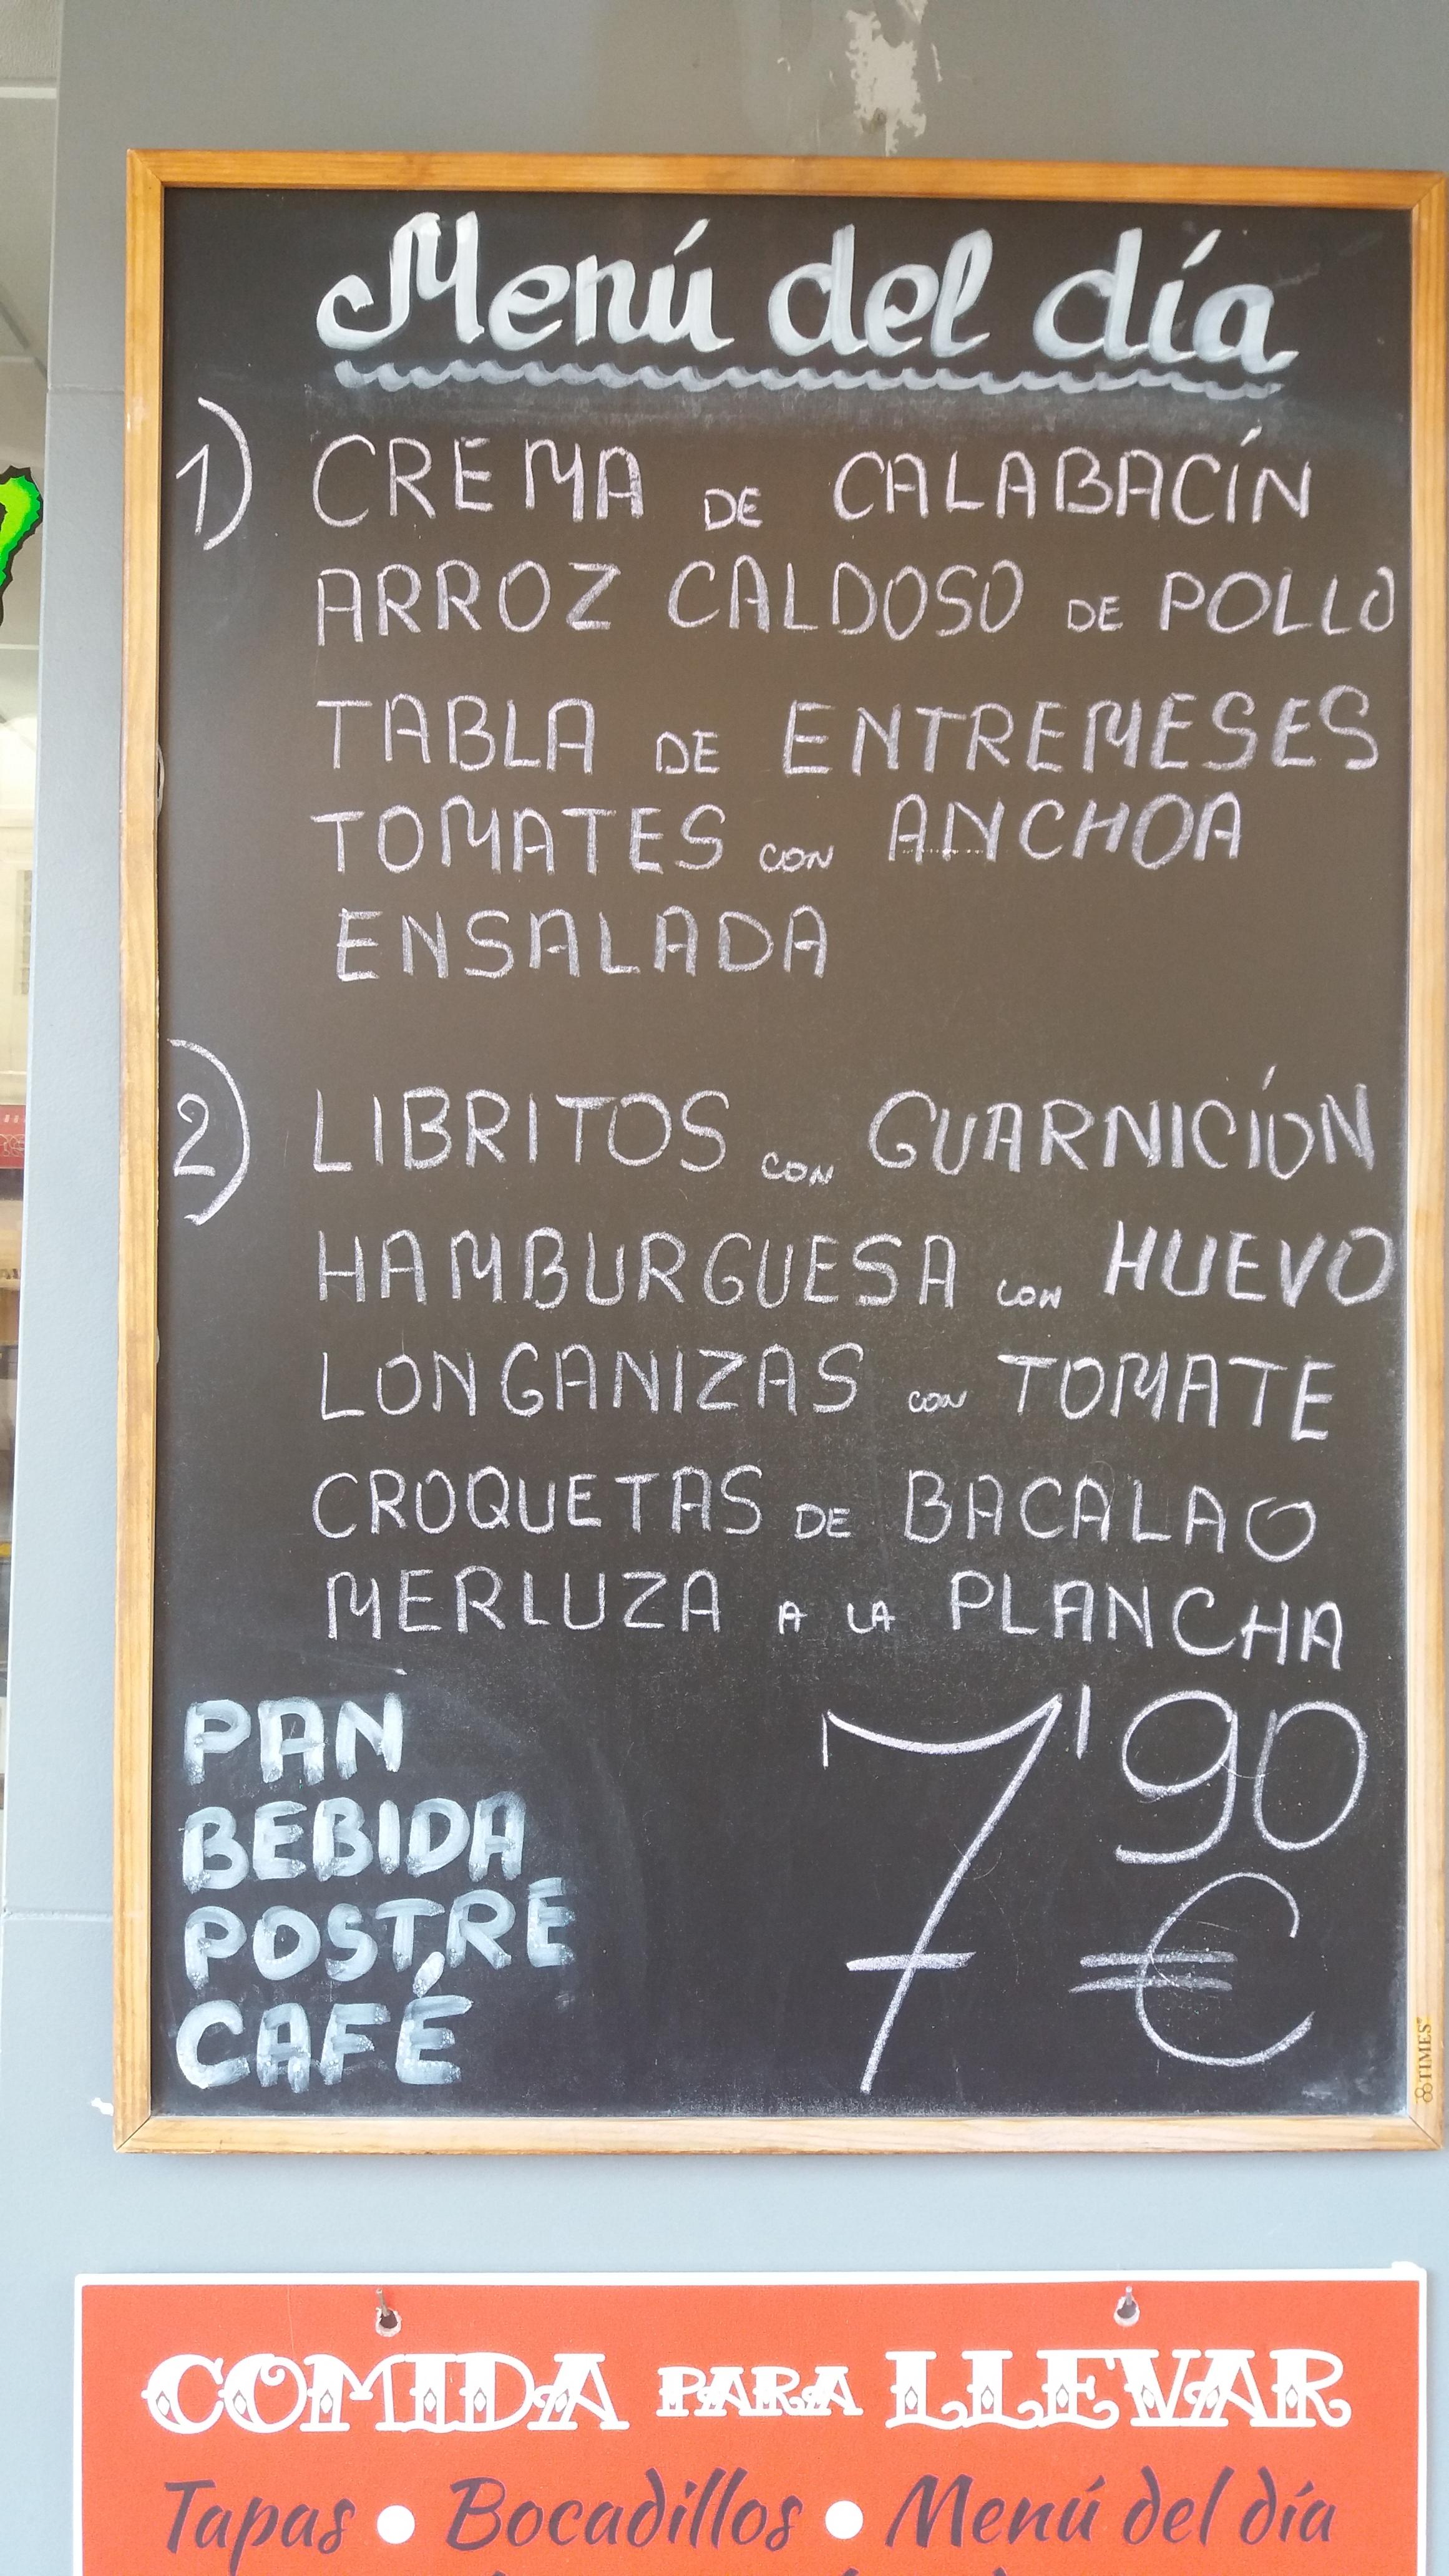 Menú del día
1) CREMA DE CALABACÍN
ARROZ CALDOSO DE POLLO
TABLA DE ENTREMESES
TOMATES CON ANCHOA
ENSALADA
2) LIBRITOS CON GUARNICIÓN
HAMBURGUESA CON HUEVO
LONGANIZAS CON TOMATE
CROQUETAS DE BACALAO
MERLUZA A LA PLANCHA
PAN
BEBIDA
POSTRE
CAFÉ
7'90
€
TIMES
COMIDA PARA LLEVAR
Tapas • Bocadillos • Menú del día